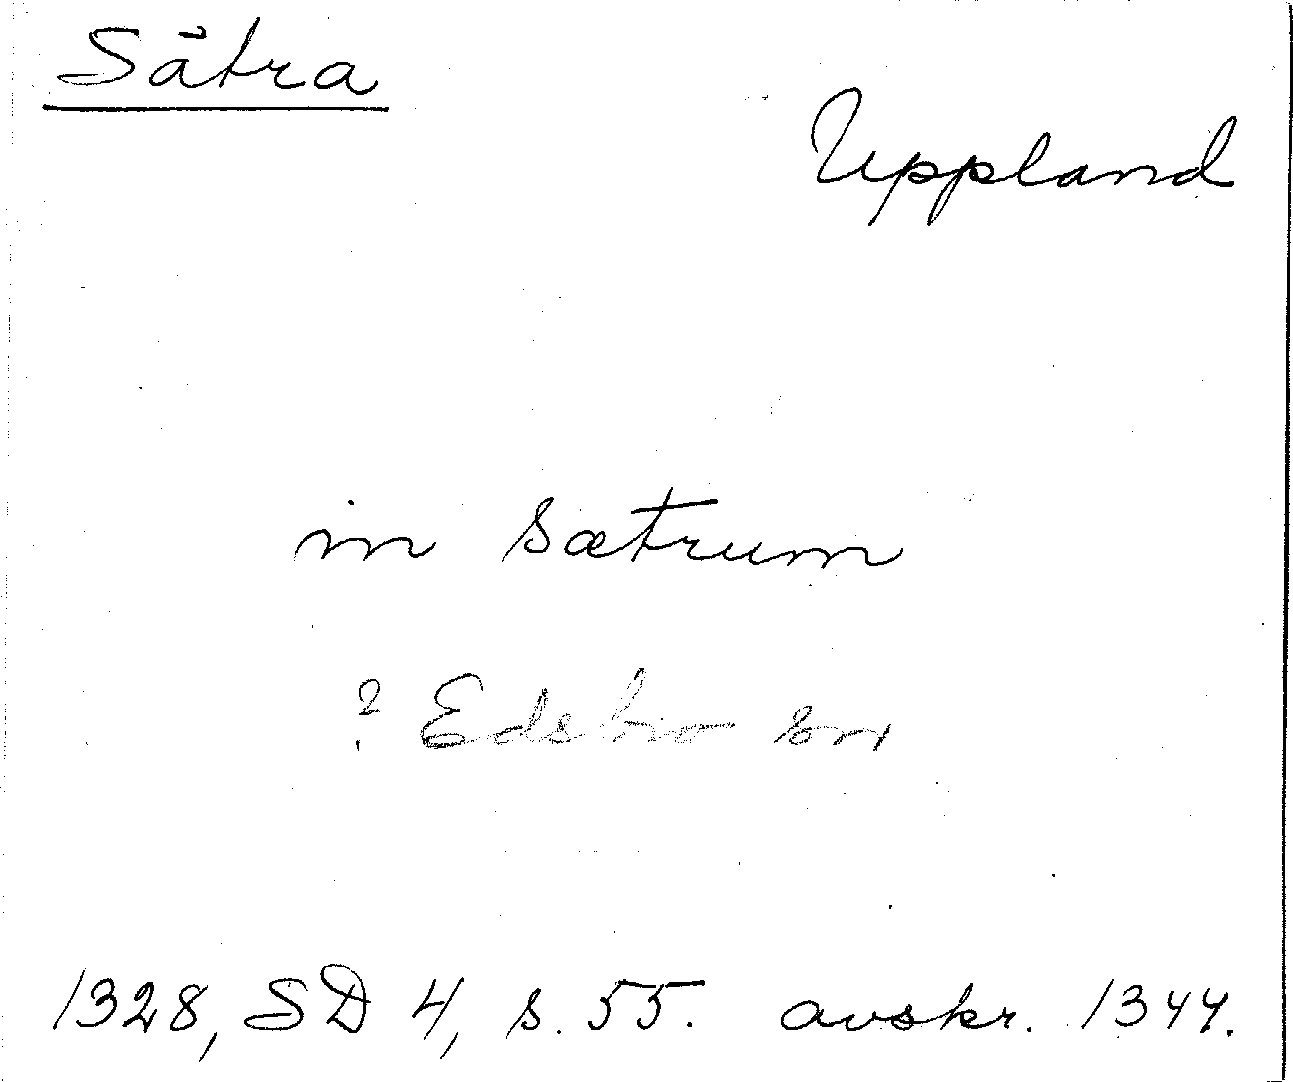 Sätra
Uppland
in Sætrum
? Edsbro sn
1328, SD 4, s. 55. avskr. 1344.